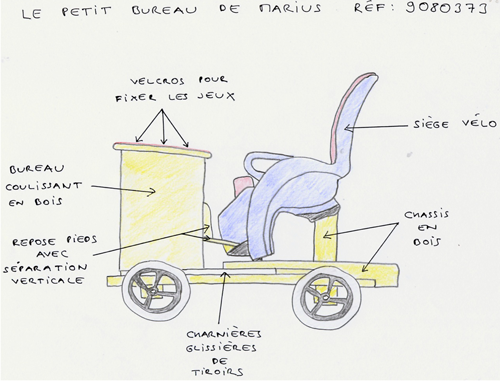 LE PETIT BUREAU DE MARIUS RÉF: 9080373
VELCROS POUR
FIXER LES JEUX
SIÈGE VÉLO
BUREAU
COULISSANT
EN BOIS
CHASSIS
EN
BOIS
REPOSE PIEDS
AVEC
SÉPARATION
VERTICALE
CHARNIÈRES
GLISSIÈRES
DE
TIROIRS